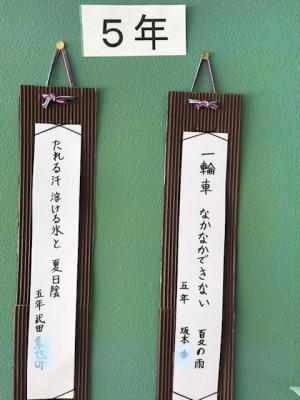 5年
一輪車 なかなかできない 夏の雨
五年 坂本
たれる汗 溶ける氷と 夏日陰
五年 武田